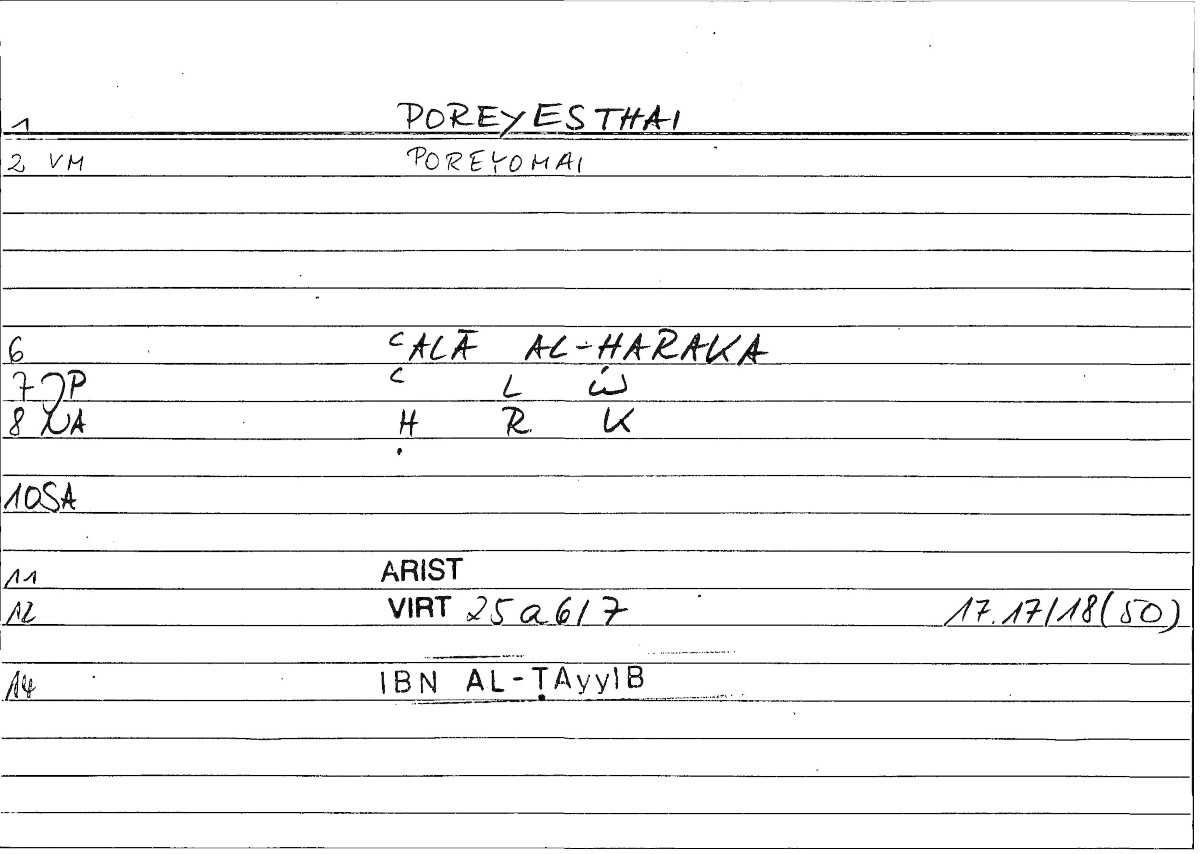 1 POREYESTHAI
2 VM POREYOMAI
6 ʿALĀ AL-ḤARAKA
7 P ʿ L Ẇ
8 NA Ḥ R K
10 SA
11 ARIST
12 VIRT 25a6/7 17.17/18(50)
14 IBN AL-ṬAyyIB